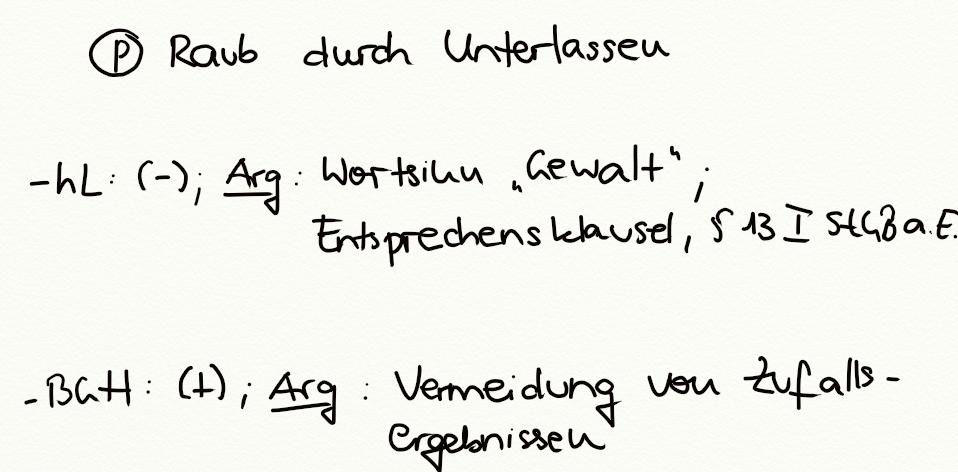 Ⓟ Raub durch Unterlassen
-hL: (-); Arg: Wortsinn „Gewalt“;
Entsprechensklausel, § 13 I StGB a.E.
-BGH: (+); Arg: Vermeidung von Zufalls-
ergebnissen